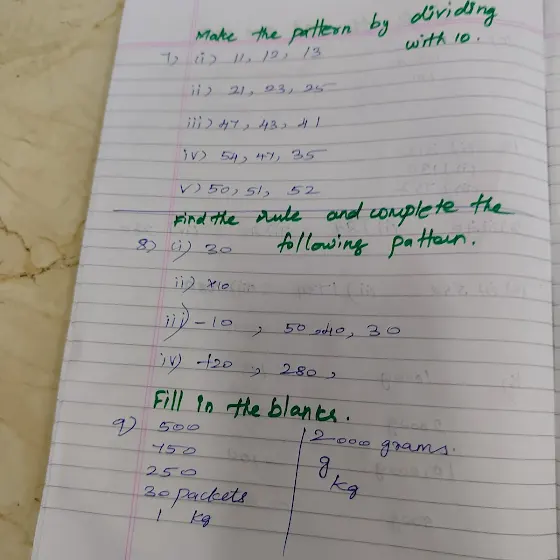 Make the pattern by dividing
with 10.
7) (i) 11, 12, 13
ii) 21, 23, 25
iii) 47, 43, 41
iv) 54, 47, 35
v) 50, 51, 52
Find the rule and complete the
following pattern.
8) (i) 30
ii) x10
iii) -10 , 50, 40, 30
iv) +20 , 280,
Fill in the blanks.
9) 500
750
250
30 packets
1 kg
2000 grams.
g
kg